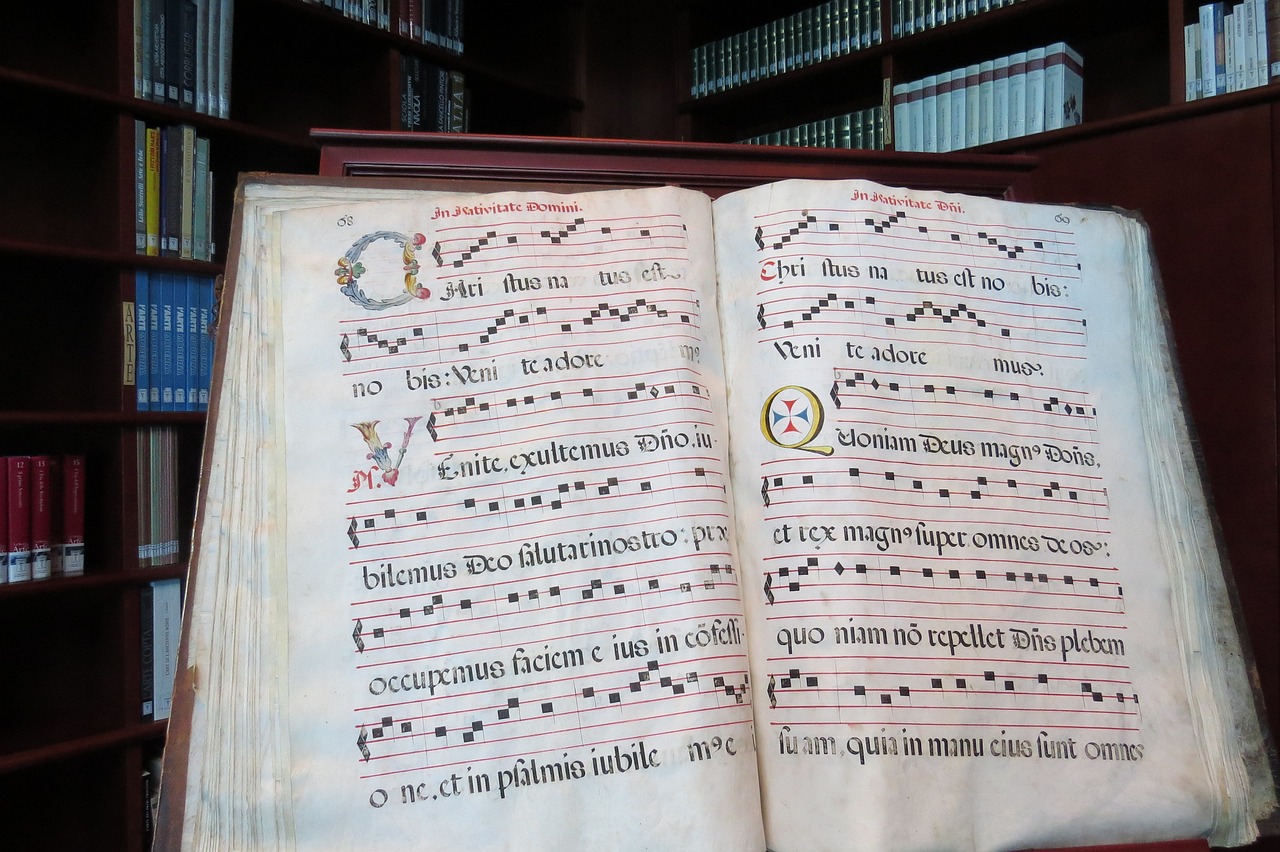 68
In Nativitate Domini.
CHri stus na tus est
no bis: Veni te adore mꝰ
Ps. VEnite, exultemus Dño, iu-
bilemus Deo salutari nostro: præ
occupemus faciem e ius in cõfessi-
o ne, et in psalmis iubile mꝰ e
69
In Nativitate Dñi.
Chri stus na tus est no bis:
Veni te adore mus.
Quoniam Deus magnꝰ Doñs,
et rex magnꝰ super omnes deos:
quo niam nõ repellet Dñs plebem
su am, quia in manu eius sunt omnes
ARTE
L'ARTE
L'ARTE
L'ARTE
L'ARTE
L'ARTE